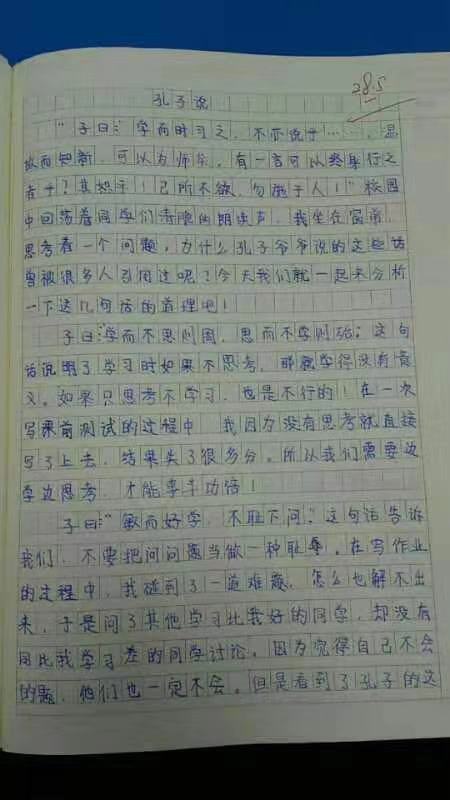 28.5
孔子说
“子曰:“学而时习之，不亦说乎……，温
故而知新，可以为师矣，有一言可以终身行之
者乎？其如乎！己所不欲，勿施于人！”校园
中回荡着同学们清脆的朗读声，我坐在窗前，
思考着一个问题，为什么孔子爷爷说的这些话
曾被很多人引用过呢？今天我们就一起来分析
一下这几句话的道理吧！
子曰:“学而不思则罔，思而不学则殆；这句
话说明了学习时如果不思考，那就学得没有意
义。如果只思考不学习，也是不行的！在一次
写课前测试的过程中，我因为没有思考就直接
写了上去，结果失了很多分。所以我们需要边
学边思考，才能事半功倍！
子曰:“敏而好学，不耻下问。”这句话告诉
我们，不要把问问题当做一种耻辱。在写作业
的过程中，我碰到了一道难题，怎么也解不出
来，于是问了其他学习比我好的同学，却没有
同比我学习差的同学讨论。因为觉得自己不会
的题，他们也一定不会。但是看到了孔子的这